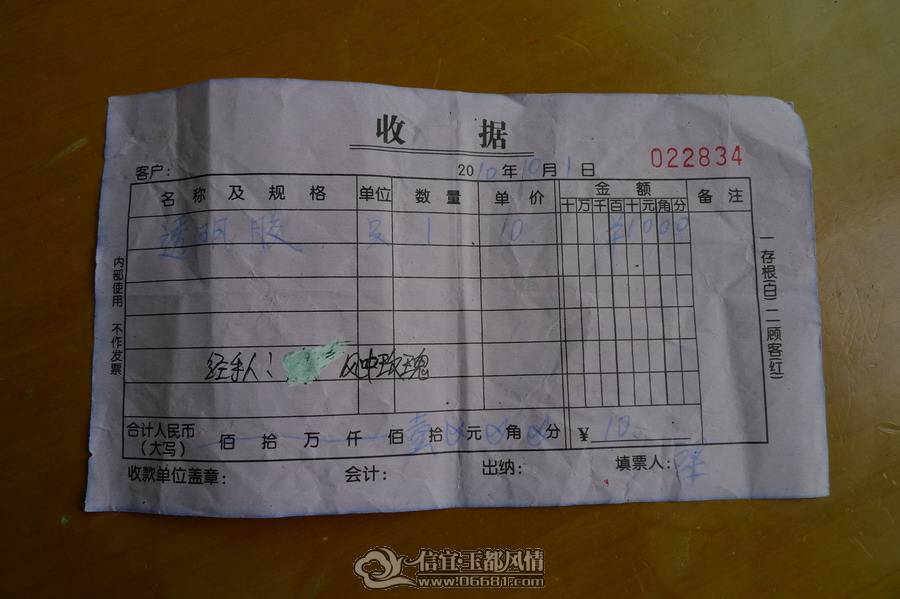 收 据
客户: 2010年10月1日 022834
名称及规格 单位 数量 单价 金额 备注
十万千百十元角分
透明胶 只 1 10 ¥1000
经手人: 风中玫瑰
合计人民币(大写) 佰拾万仟佰壹拾元角分 ¥10
收款单位盖章: 会计: 出纳: 填票人:
内部使用 不作发票
一存根(白)二顾客(红)
信宜·玉都风情
www.06681.com